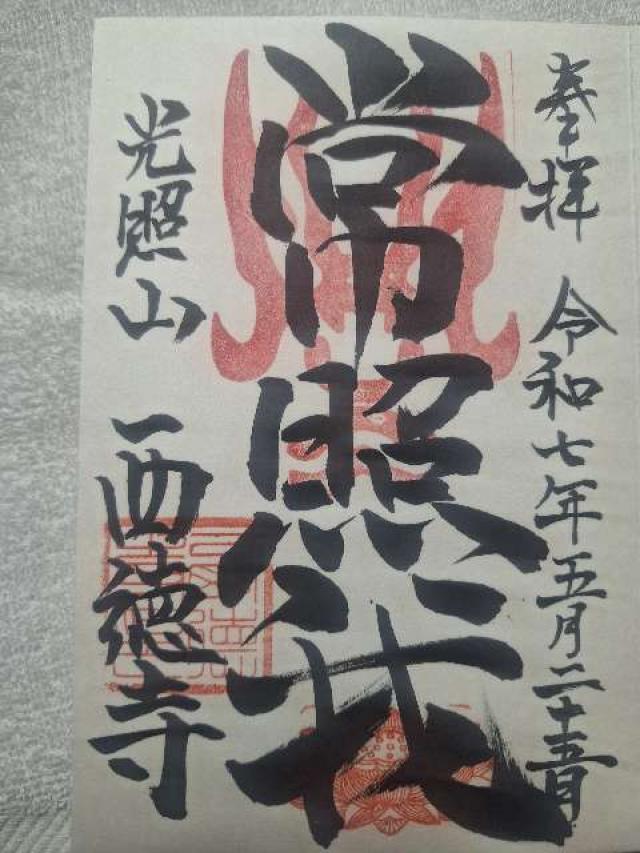 奉拝 令和七年五月二十五日
常照我
光照山 西徳寺